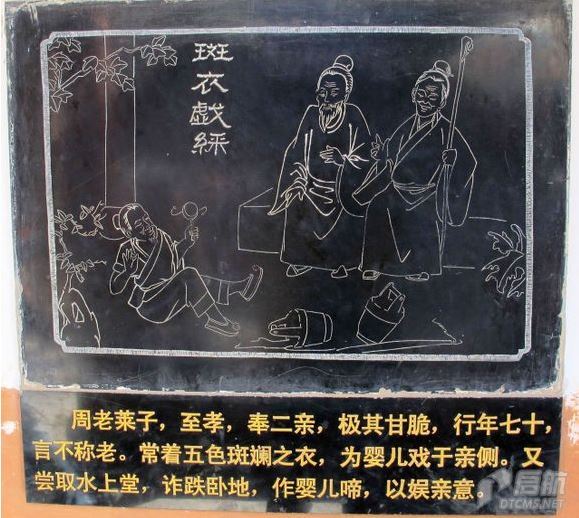 斑衣戯綵
周老莱子，至孝，奉二亲，极其甘脆，行年七十，
言不称老。常着五色斑斓之衣，为婴儿戏于亲侧。又
尝取水上堂，诈跌卧地，作婴儿啼，以娱亲意。
启航
DTCMS.NET